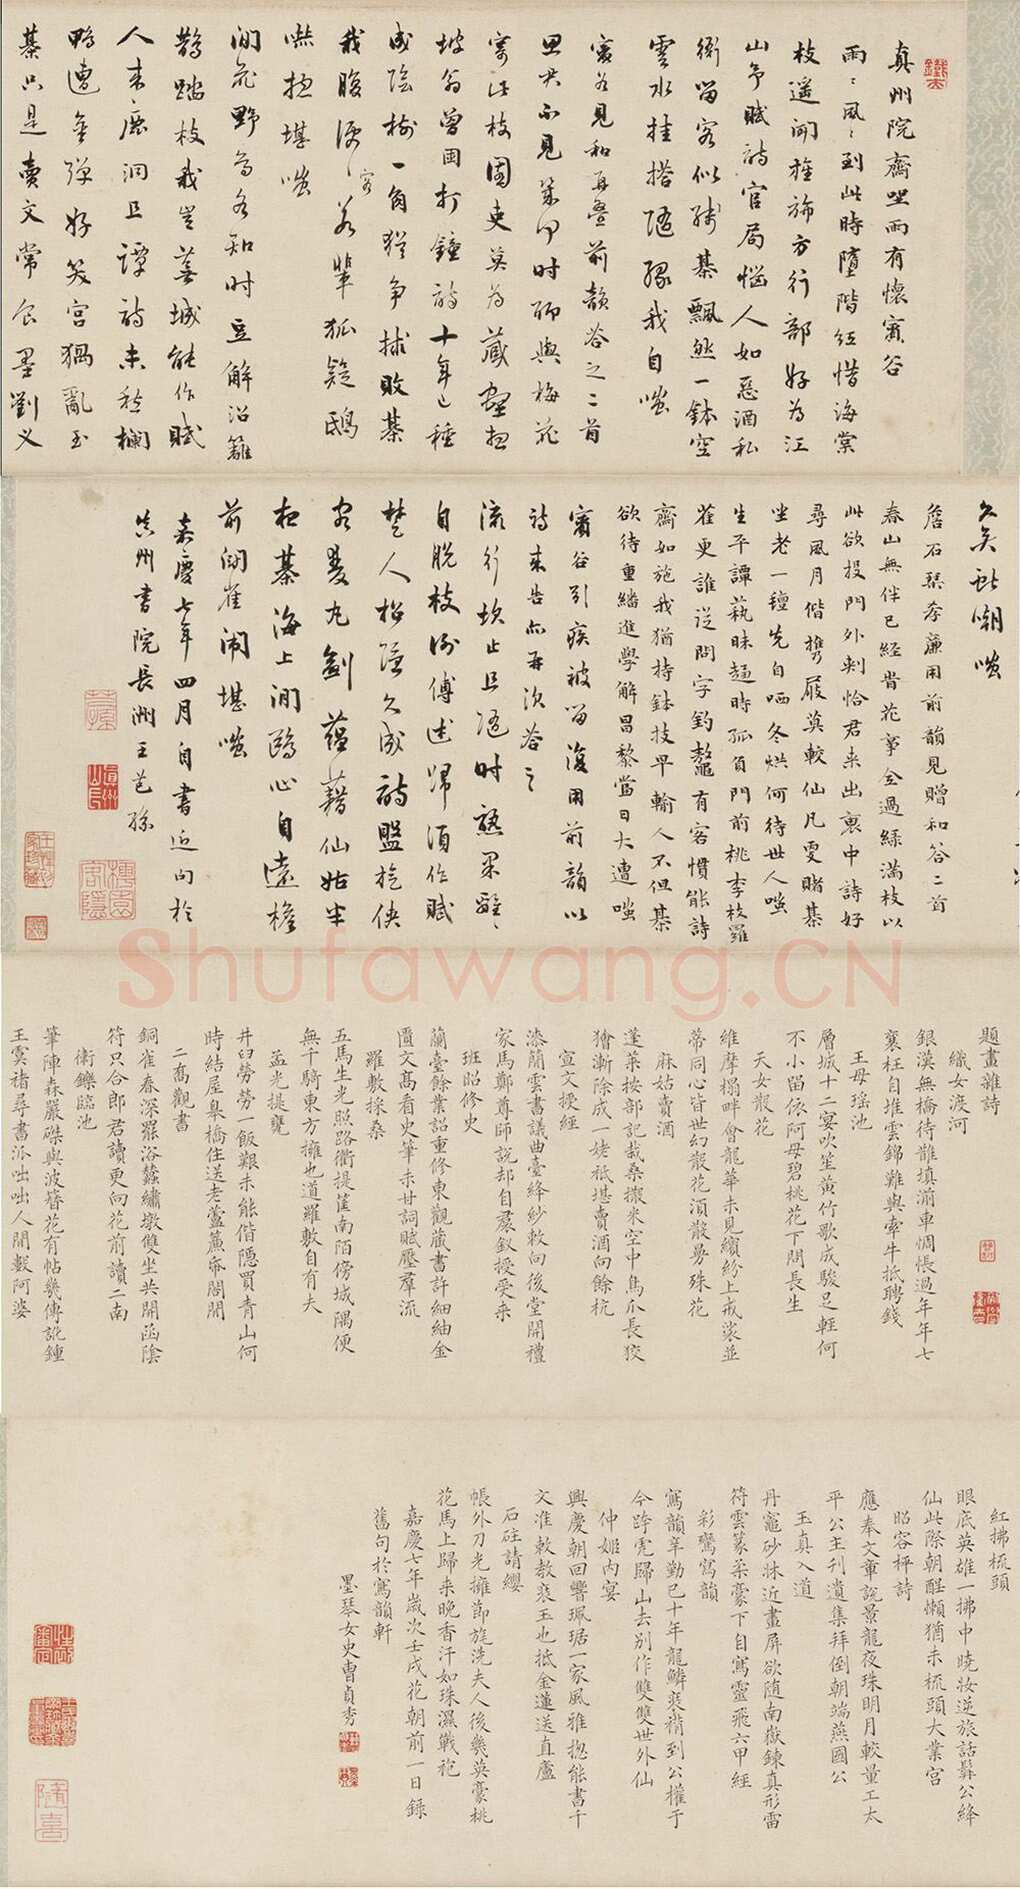 真州院齋坐雨有懷賓谷
雨雨風風到此時墮階紅惜海棠
枝遥開旌旆方行部好為江
山爭賦詩官局惱人如惡酒私
衙留客似殘棊飄然一鉢空
雲水挂搭隨緣我自嗤
賓谷見和再疊前韻答之二首
思君不見
時聊與梅花
寄一枝園吏莫為藏
坡翁曾
打鍾詩十年已種
成陰樹一角猶爭拔敗棊
我腹便便容若輩狐疑鴟
嚇捴堪嗤
澗花野鳥各知時豆解沿籬
鵲踏枝我豈蕪城能作賦
人來鹿洞且譚詩未愁欄
鴨遭金彈好笑宮猧亂玉
棊只是賣文常食墨劉义
久矣耻嘲嗤
詹石琹孝廉用前韻見贈和答二首
春山無伴已經背花事全過緑滿枝以
此欲投門外刺恰君来出裏中詩好
尋風月偕携屐莫較仙凡更賭棊
坐老一氊先自哂冬烘何待世人嗤
生平譚蓺昧趨時孤負門前桃李枝羅
雀更誰從問字釣鼇有客慣能詩
齋如施我猶持鉢技早輸人不但棊
欲待重繙進學解昌黎當日大遭嗤
賓谷引疾被留復用前韻以
詩来告亦再次答之
流行坎止且隨時
自脱枝
傅述歸須作賦
楚人
久成詩盟
俠
老
丸劍蘊藉仙姑半
柏棊海上澗鷗心自遠檐
前澗雀鬧堪嗤
嘉慶七年四月自書近句於
真州書院長洲王芑孫
題畫雜詩
織女渡河
銀漢無橋待鵲填湔車惆悵過年年七
襄枉自堆雲錦難與牽牛抵聘錢
王母瑶池
層城十二宴吹笙黄竹歌成駿足輕何
不小留依阿母碧桃花下問長生
天女散花
維摩榻畔會龍華未見繽紛上戒裟並
蒂同心皆世幻散花須散男殊花
麻姑賣酒
蓬萊按部記栽桑擲米空中鳥爪長狡
獪漸除成一姥祗堪賣酒向餘杭
宣文授經
漆簡雲書議曲臺絳紗敕向後堂開禮
家馬鄭尊師說却自裠釵授受来
班昭修史
蘭臺餘業詔重修東觀藏書許細紬金
匱文髙看史筆未甘詞賦壓羣流
羅敷採桑
五馬生光照路衢提篚南陌傍城隅便
無千騎東方擁也道羅敷自有夫
孟光提甕
井臼勞勞一飯艱未能偕隱買青山何
時結屋皋橋住送老蘆簾帘閣閒
二喬觀書
銅雀春深罷浴蠶繡墩雙坐共開函陰
符只合郎君讀更向花前讀二南
衛鑠臨池
筆陣森嚴磔與波簪花有帖幾傳訛鍾
王虞褚尋書派咄咄人間數阿婆
紅拂梳頭
眼底英雄一拂中曉妝逆旅話髯公絳
仙此際朝酲懶猶未梳頭大業宮
昭容秤詩
應奉文章説景龍夜珠明月較量工太
平公主刊遺集拜倒朝端燕國公
玉真入道
丹竈砂牀近畫屏欲随南嶽鍊真形雷
符雲篆柔豪下自寫靈飛六甲經
彩鸞寫韻
寫韻辛勤已十年龍鱗裝褙到公權于
今跨虎歸山去别作雙雙世外仙
仲姬内宴
興慶朝回響珮琚一家風雅揔能書千
文准敕教裝玉也抵金蓮送直廬
石砫請纓
帳外刀光擁節旄洗夫人後幾英豪桃
花馬上歸来晚香汗如珠濕戰袍
嘉慶七年嵗次壬戌花朝前一日録
舊句於寫韻軒
墨琴女史曹貞秀
Shufawang.CN